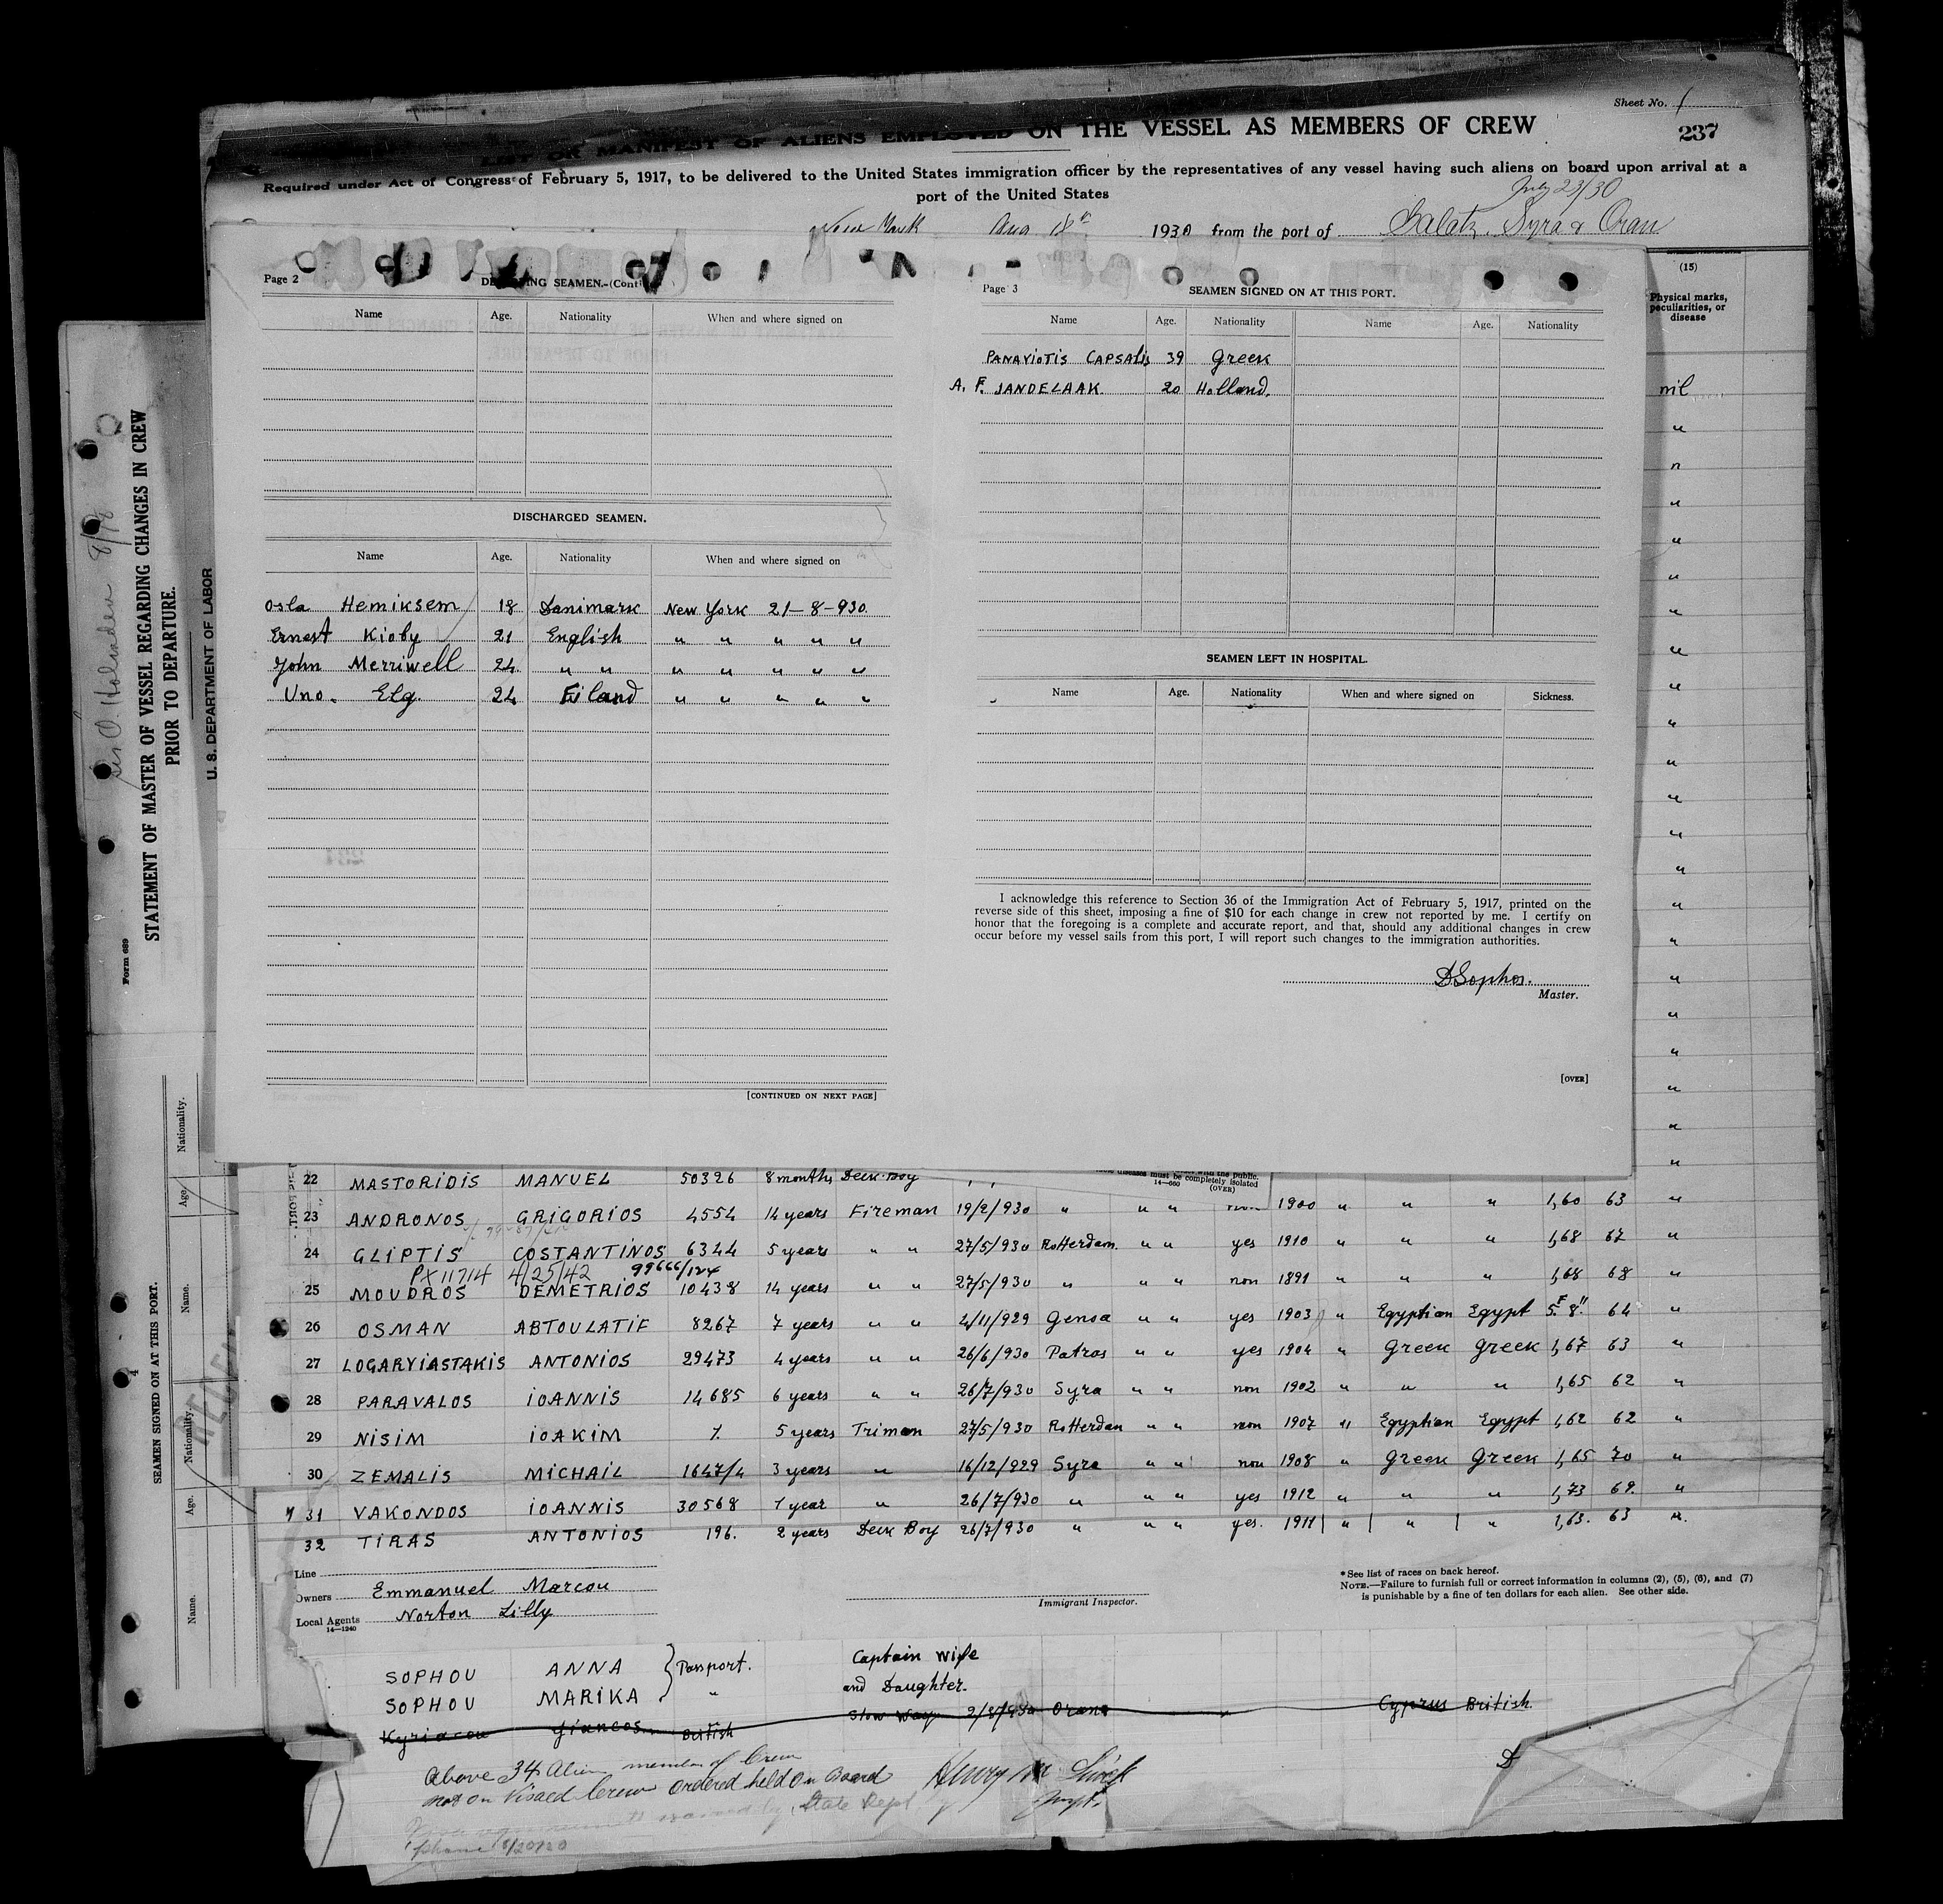 Sheet No. 1
237
LIST OR MANIFEST OF ALIENS EMPLOYED ON THE VESSEL AS MEMBERS OF CREW
Required under Act of Congress of February 5, 1917, to be delivered to the United States immigration officer by the representatives of any vessel having such aliens on board upon arrival at a
port of the United States
July 23/30
New York Aug 18th 1930 from the port of Galatz, Syra & Oran
(15)
Physical marks, peculiarities, or disease
nil
Page 2
DEPARTING SEAMEN.-(Cont
Name Age. Nationality When and where signed on
DISCHARGED SEAMEN.
Name Age. Nationality When and where signed on
Osla Hemiksem 18 Danimark New York 21-8-930.
Ernest Kioby 21 English " " " " "
John Merriwell 24 " " " " " " "
Uno. Elg. 24 Filand " " " " "
[CONTINUED ON NEXT PAGE]
Page 3
SEAMEN SIGNED ON AT THIS PORT.
Name Age. Nationality Name Age. Nationality
PANAYIOTIS CAPSALIS 39 Greek
A. F. JANDELAAK. 20 Holland.
SEAMEN LEFT IN HOSPITAL.
Name Age. Nationality When and where signed on Sickness.
I acknowledge this reference to Section 36 of the Immigration Act of February 5, 1917, printed on the
reverse side of this sheet, imposing a fine of $10 for each change in crew not reported by me. I certify on
honor that the foregoing is a complete and accurate report, and that, should any additional changes in crew
occur before my vessel sails from this port, I will report such changes to the immigration authorities.
DSophos.
Master.
[OVER]
Form 689
STATEMENT OF MASTER OF VESSEL REGARDING CHANGES IN CREW
PRIOR TO DEPARTURE.
U. S. DEPARTMENT OF LABOR
SEAMEN SIGNED ON AT THIS PORT.
Name. Age. Nationality. Name. Age. Nationality.
diseases must be completely isolated
14—660 (OVER)
22 MASTORIDIS MANUEL 50326 8 months Deck boy
23 ANDRONOS GRIGORIOS 4554 14 years Fireman 19/2/930 " " " non 1900 " " " 1,60 63 "
24 GLIPTIS COSTANTINOS 6344 5 years " " 27/5/930 Rotterdam " " yes 1910 " " " 1,68 67 "
PX11714 4/25/42 99666/124
25 MOUDROS DEMETRIOS 10438 14 years " " 27/5/930 " " " non 1891 " " " 1,68 68 "
26 OSMAN ABTOULATIF 8267 7 years " " 4/11/929 Genoa " " yes 1903 " Egyptian Egypt 5F 8" 64 "
27 LOGARYIASTAKIS ANTONIOS 29473 4 years " " 26/6/930 Patras " " yes 1904 " Greek Greek 1,67 63 "
28 PARAVALOS IOANNIS 14685 6 years " " 26/7/930 Syra " " non 1902 " " " 1,65 62 "
29 NISIM IOAKIM 7. 5 years Trimon 27/5/930 Rotterdan " " non 1907 " Egyptian Egypt 1,62 62 "
30 ZEMALIS MICHAIL 1647/4 3 years " 16/12/929 Syra " " non 1908 " Greek Greek 1,65 70 "
31 VAKONDOS IOANNIS 30568 1 year " 26/7/930 " " " yes 1912 " " " 1,73 69. "
32 TIRAS ANTONIOS 196. 2 years Deck Boy 26/7/930 " " " yes. 1911 " " " 1,63. 63 ".
Line
Owners Emmanuel Marcou
Local Agents Norton Lilly
14—1240
Immigrant Inspector.
* See list of races on back hereof.
NOTE.—Failure to furnish full or correct information in columns (2), (5), (6), and (7)
is punishable by a fine of ten dollars for each alien. See other side.
SOPHOU ANNA Passport. Captain Wife
SOPHOU MARIKA " and Daughter.
Kyriacou Giancos British Stow Way 2/8/930 Orano Cyprus British.
Above 34 Alien member of Crew
not on Visaed Crew ordered held on Board
State Dept
phone 8/20/30